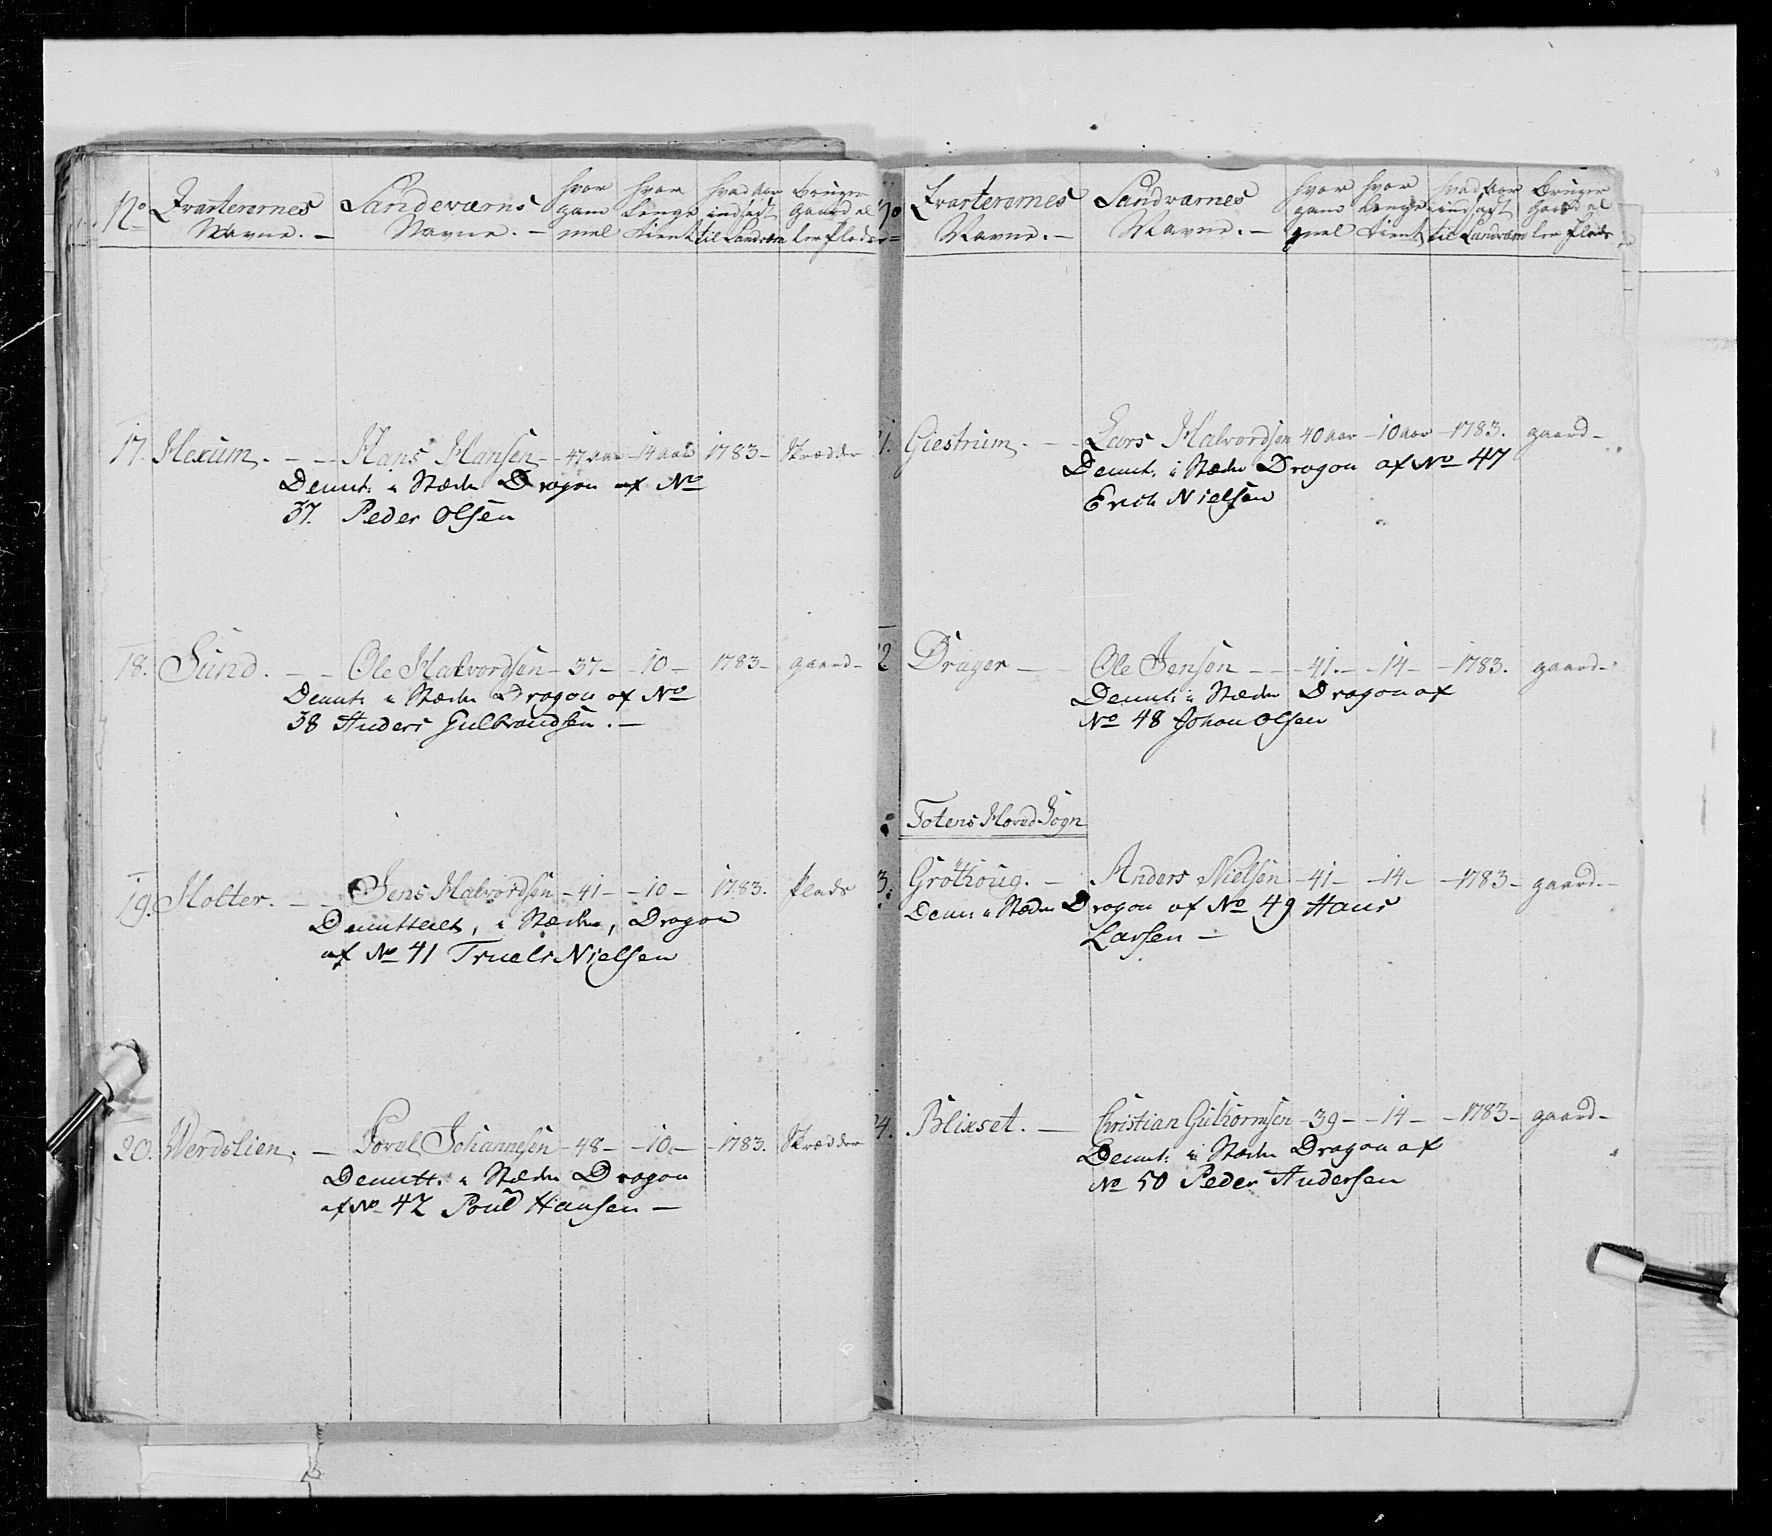 No Qvarterernes Navne. – Landeværns Navne. – hvor gam mel hvor Lenge tient hvad aar indsagt til Landværn Bruger Gaard el ler Plads
17. Hexum. – – Hans Hansen – 47 aar – 14 aar 1783 – Skrædder
Demt: i Stæden Dragon af No
37. Peder Olsen
18. Sund. – – Ole Halvordsen – 37 – – 10 – 1783 – gaard –
Demt: i Stæden Dragon af No
38 Anders Gulbrandsen. –
19. Holter. – – Jens Halvordsen – 41 – – 10 – 1783. plads
Demitteret, i Stæden, Dragon
af No 41 Truels Nielsen
20. Werdolien. – Povel Johannesen – 48 – – 10 – – 1783. Skrædder
Demitt. i Stæden Dragon
af No 42 Poul Hansen –
No Qvarterernes Navne. – Landværnes Navne. – hvor gam mel hvor Lenge tient hvad aar indsagt til Landværn Bruger Gaard el ler Plads
1. Giestrum. – – Lars Halvordsen 40 aar – 10 aar – 1783. gaard –
Demt. i Stæden Dragon af No 47
Erich Nielsen
2 Drager – Ole Jensen – – – 41. – – 14 – – 1783. gaard –
Demt: i Stæden Dragon af
No 48 Johan Olsen
Totens Hoved Sogn
3. Gröthoug. – Anders Nielsen – 41 – – 14 – – 1783 – gaard. –
Dem: i Stæden Dragon af No 49 Hans
Larsen –
4. Blixset. – Christian Guthormsen – 39 – – 14 – – 1783 – gaard –
Demt: i Stæden Dragon af
No 50 Peder Andersen